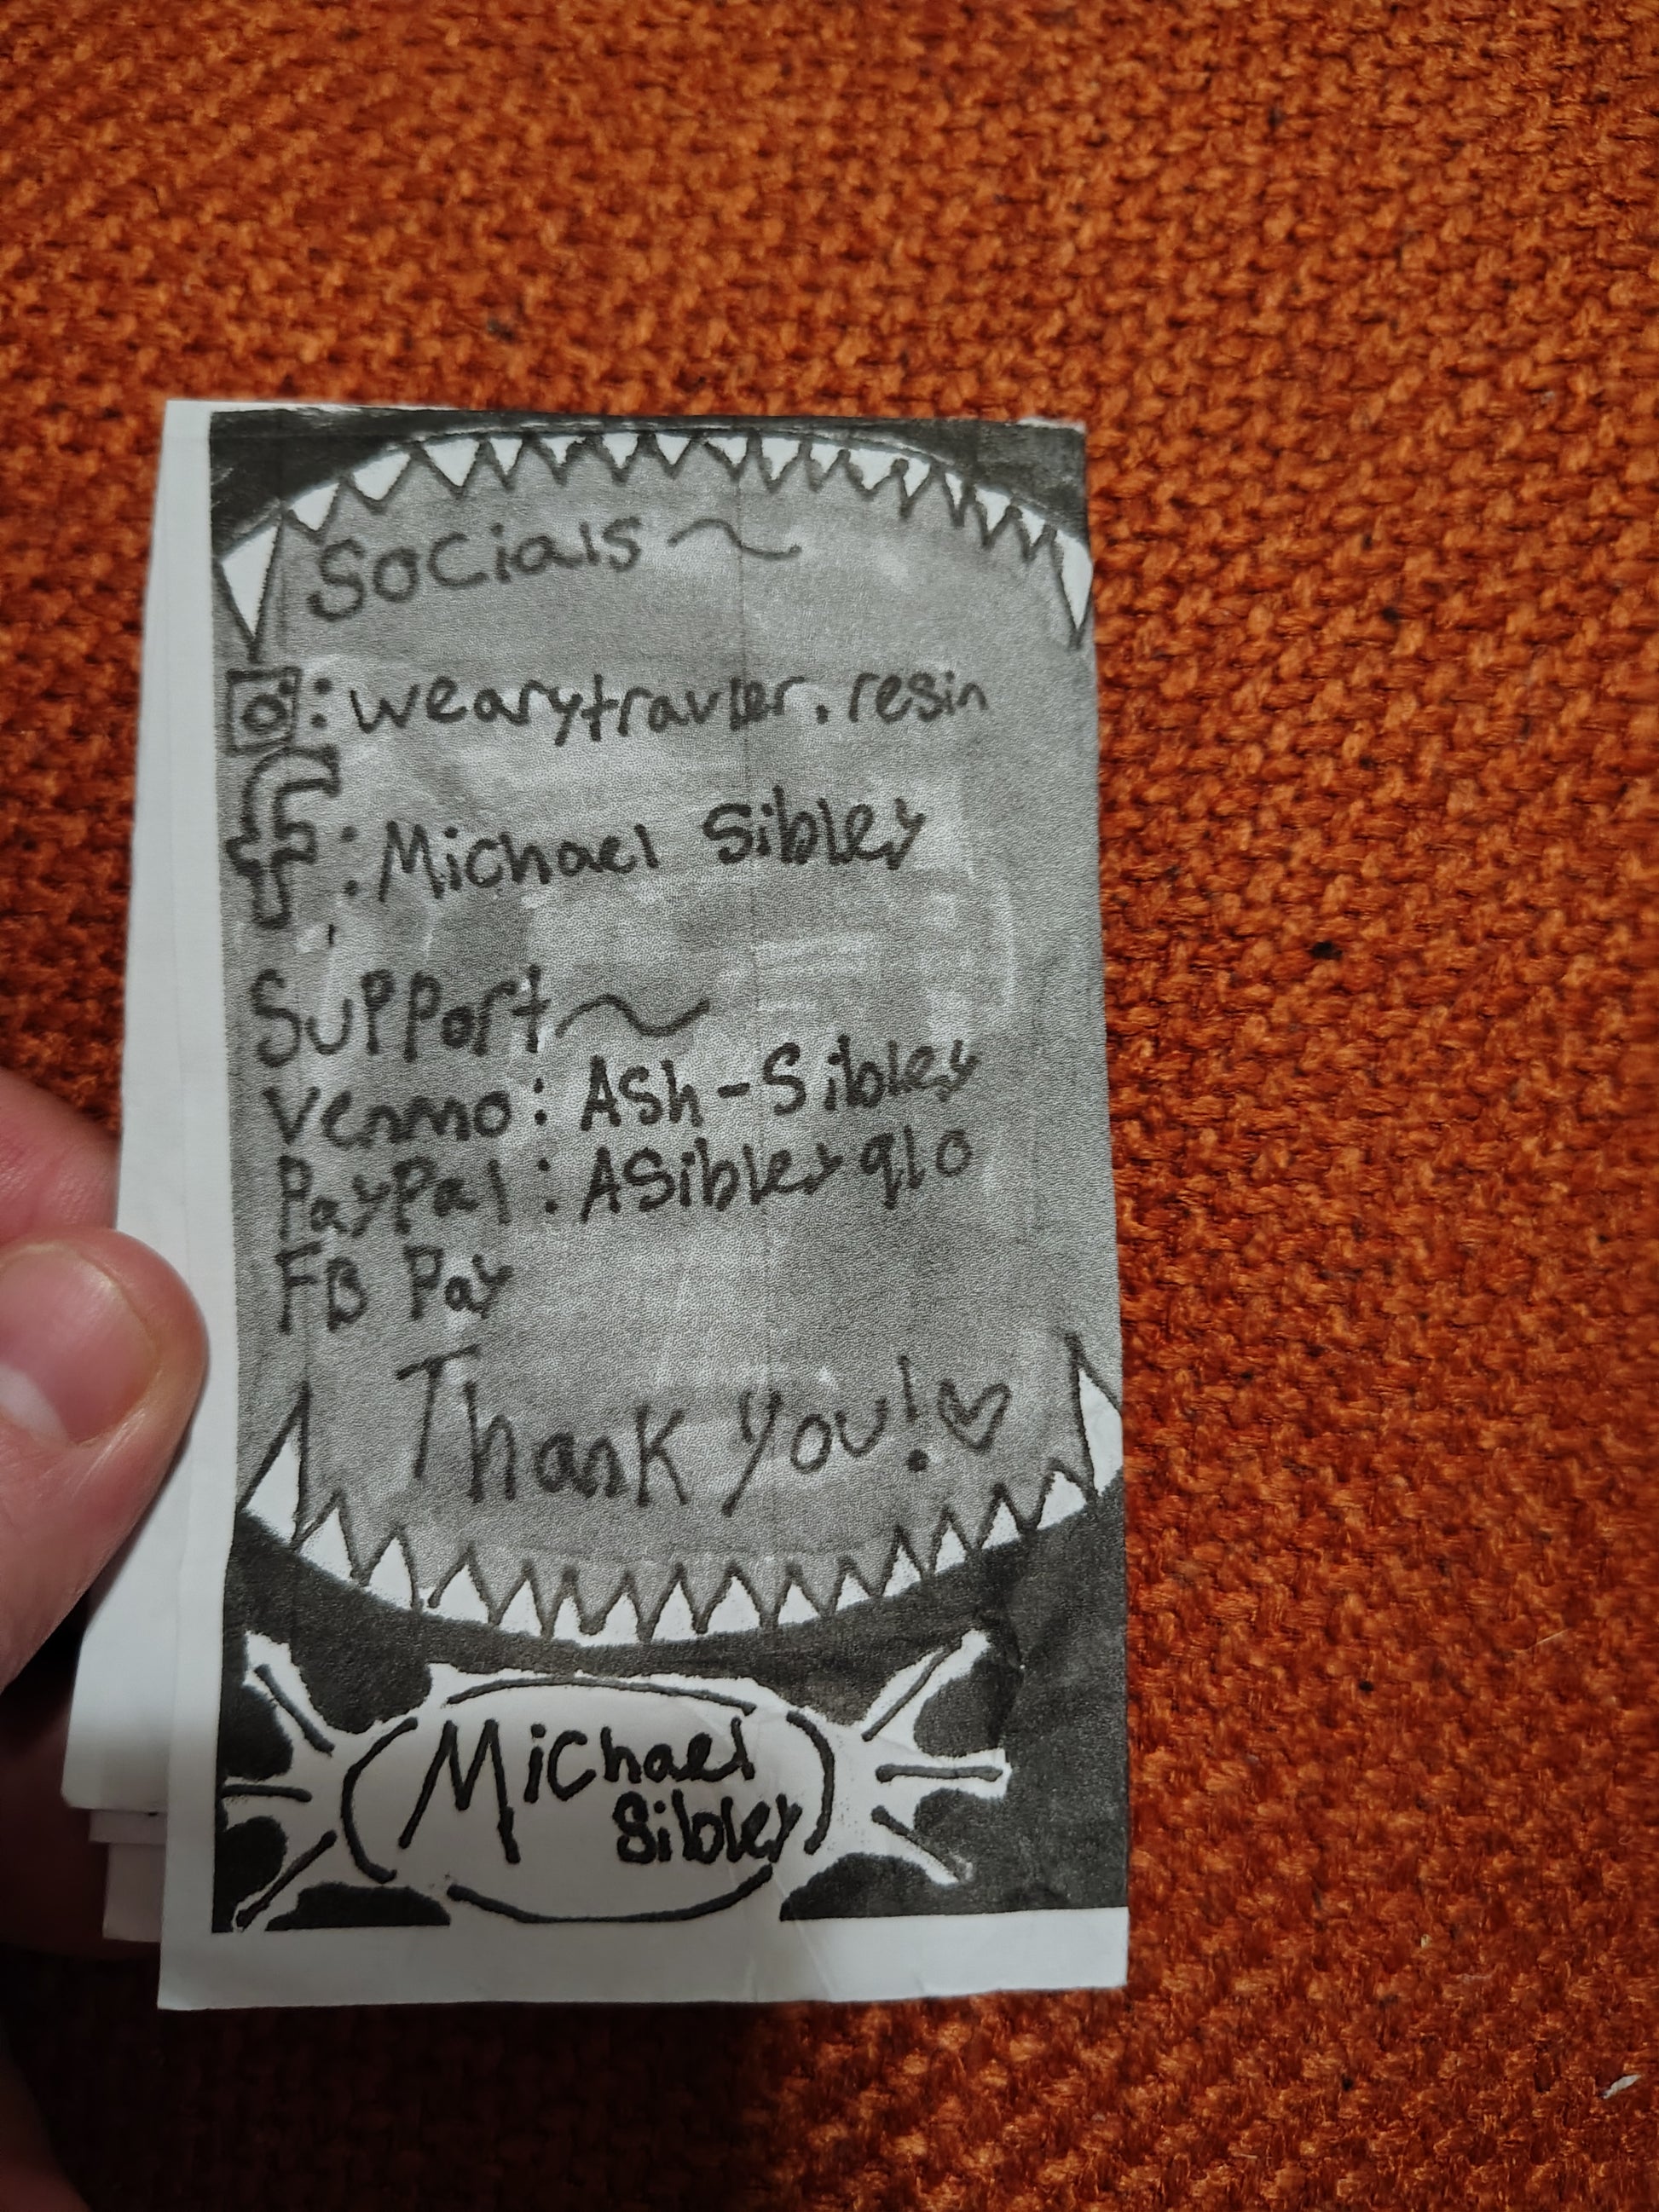 Socials ~
: wearytravler.resin
: Michael Sibley
Support ~
Venmo: Ash-Sibley
PayPal: ASibley910
FB Pay
Thank You! ♡
Michael
Sibley